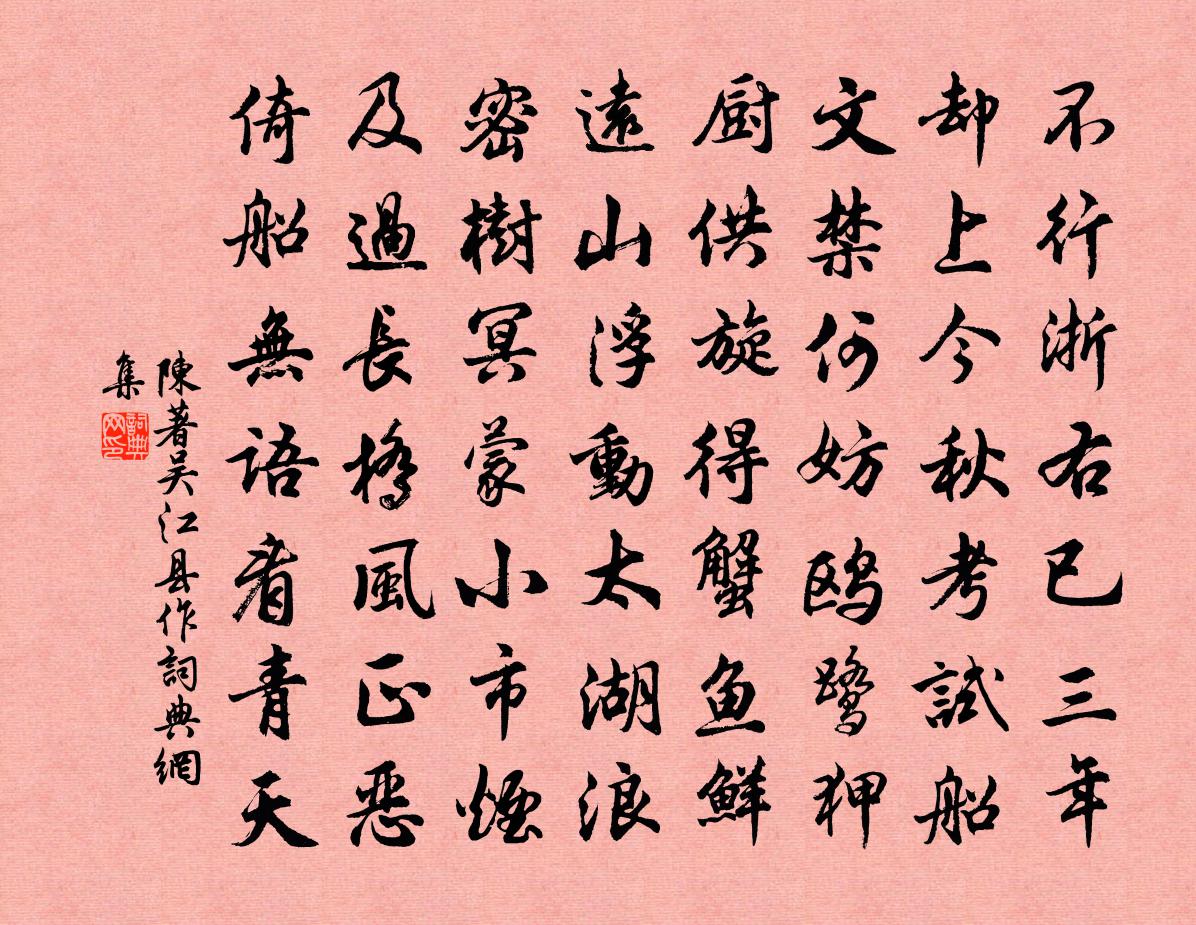 不行浙右已三年
却上今秋考試船
文禁何妨鸥鹭狎
厨供旋得蟹鱼鮮
遠山浮動太湖浪
密樹冥蒙小市煙
及過長橋風正恶
倚船無語看青天
陳著吴江县作詞典網
集
詞典
网印